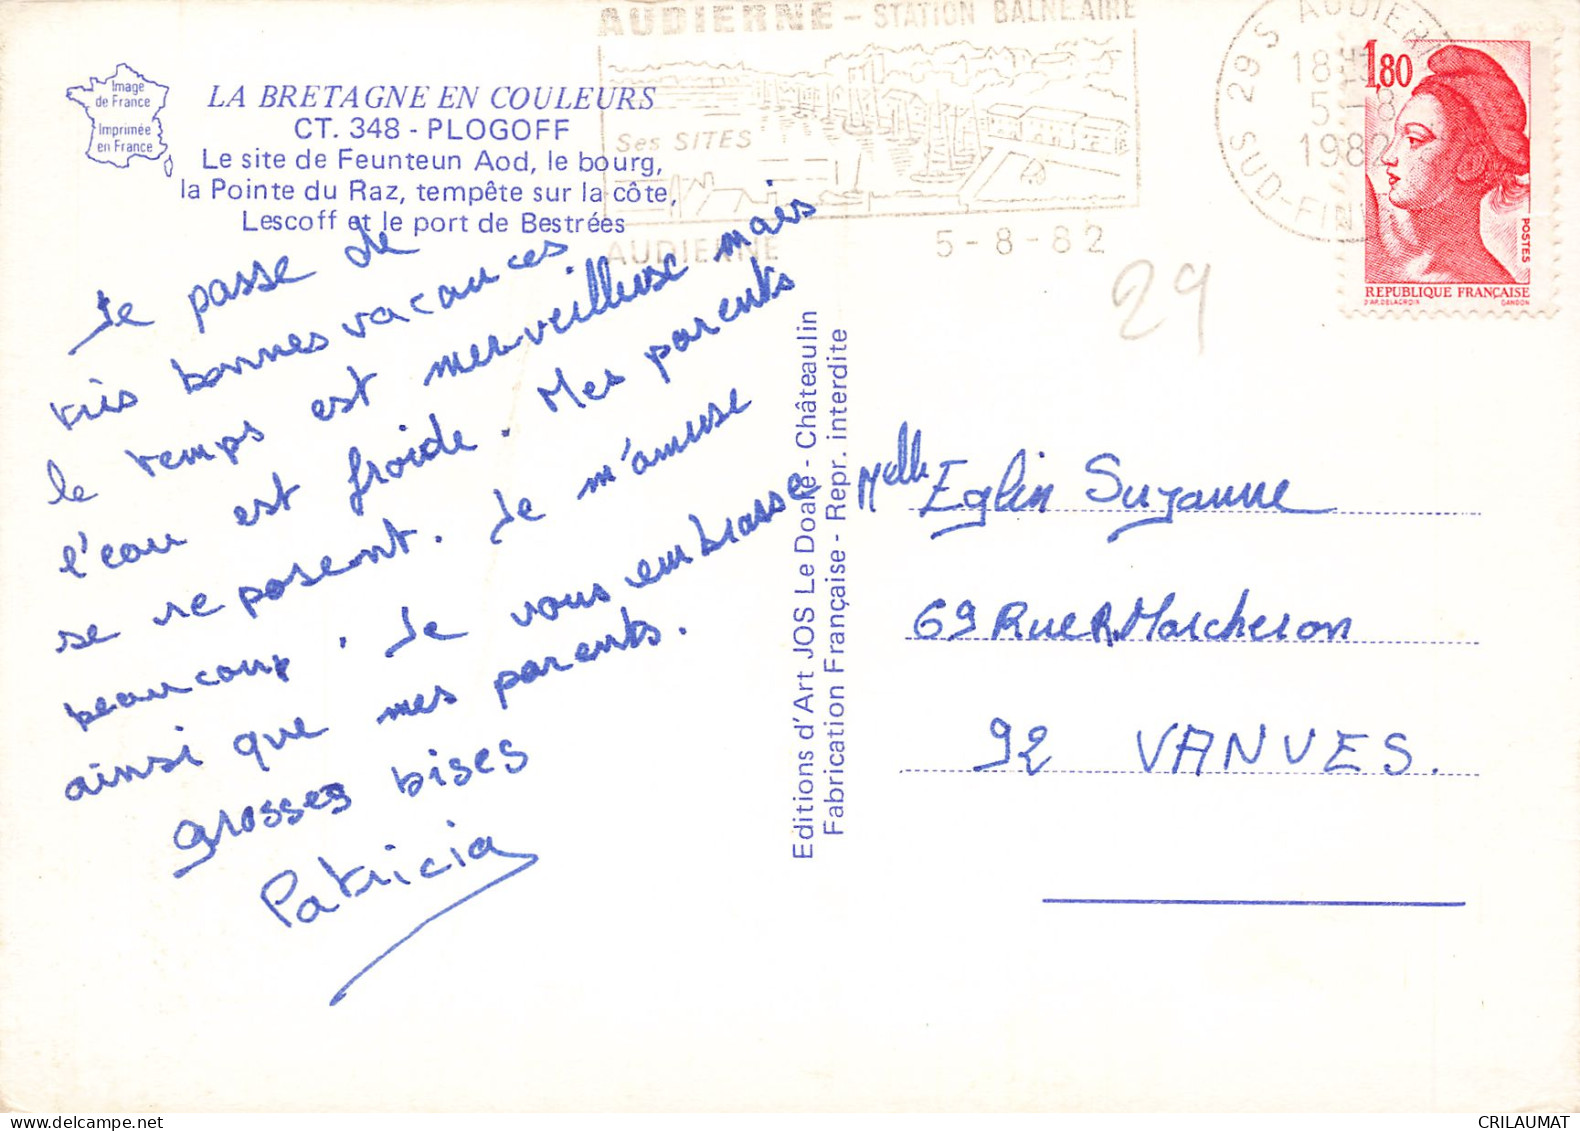 AUDIERNE - STATION BALNEAIRE
Ses SITES
AUDIERNE
5-8-82
29 S AUDIERNE
18H
5-8
1982
SUD-FIN
1,80
POSTES
REPUBLIQUE FRANÇAISE
D'AP. DELACROIX GANDON
Image
de France
Imprimée
en France
LA BRETAGNE EN COULEURS
CT. 348 - PLOGOFF
Le site de Feunteun Aod, le bourg,
la Pointe du Raz, tempête sur la côte,
Lescoff et le port de Bestrées
29
Je passe de
très bonnes vacances
le temps est merveilleuse mais
l'eau est froide. Mes parents
se reposent. Je m'amuse
beaucoup. Je vous embrasse
ainsi que mes parents.
Grosses bises
Patricia
Editions d'Art JOS Le Doaré - Châteaulin
Fabrication Française - Repr. interdite
Melle Eglin Suzanne
69 Rue R. Marcheron
92 VANVES.
CRILAUMAT